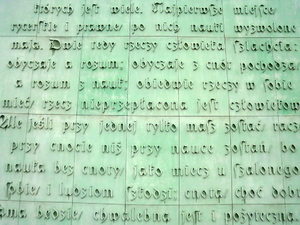 których jest wiele. Najpierwsze miejsce
rycerskie i prawne/ po nich nauki wyzwolone
mają. Dwie tedy rzeczy człowieka szlachcą:
obyczaje a rozum: obyczaje z cnót pochodzą/
a rozum z nauk: obiedwie rzeczy w sobie
mieć/ rzecz nieprzepłacona jest człowiekowi
Ale jeśli przy jednej tylko masz zostać/ racz
przy cnocie niż przy nauce zostań/ bo
nauka bez cnoty/ jako miecz u szalonego
sobie/ i ludziom szkodzi: cnota/ choć dobr
ama będzie/ chwalebna jest i pożyteczna.